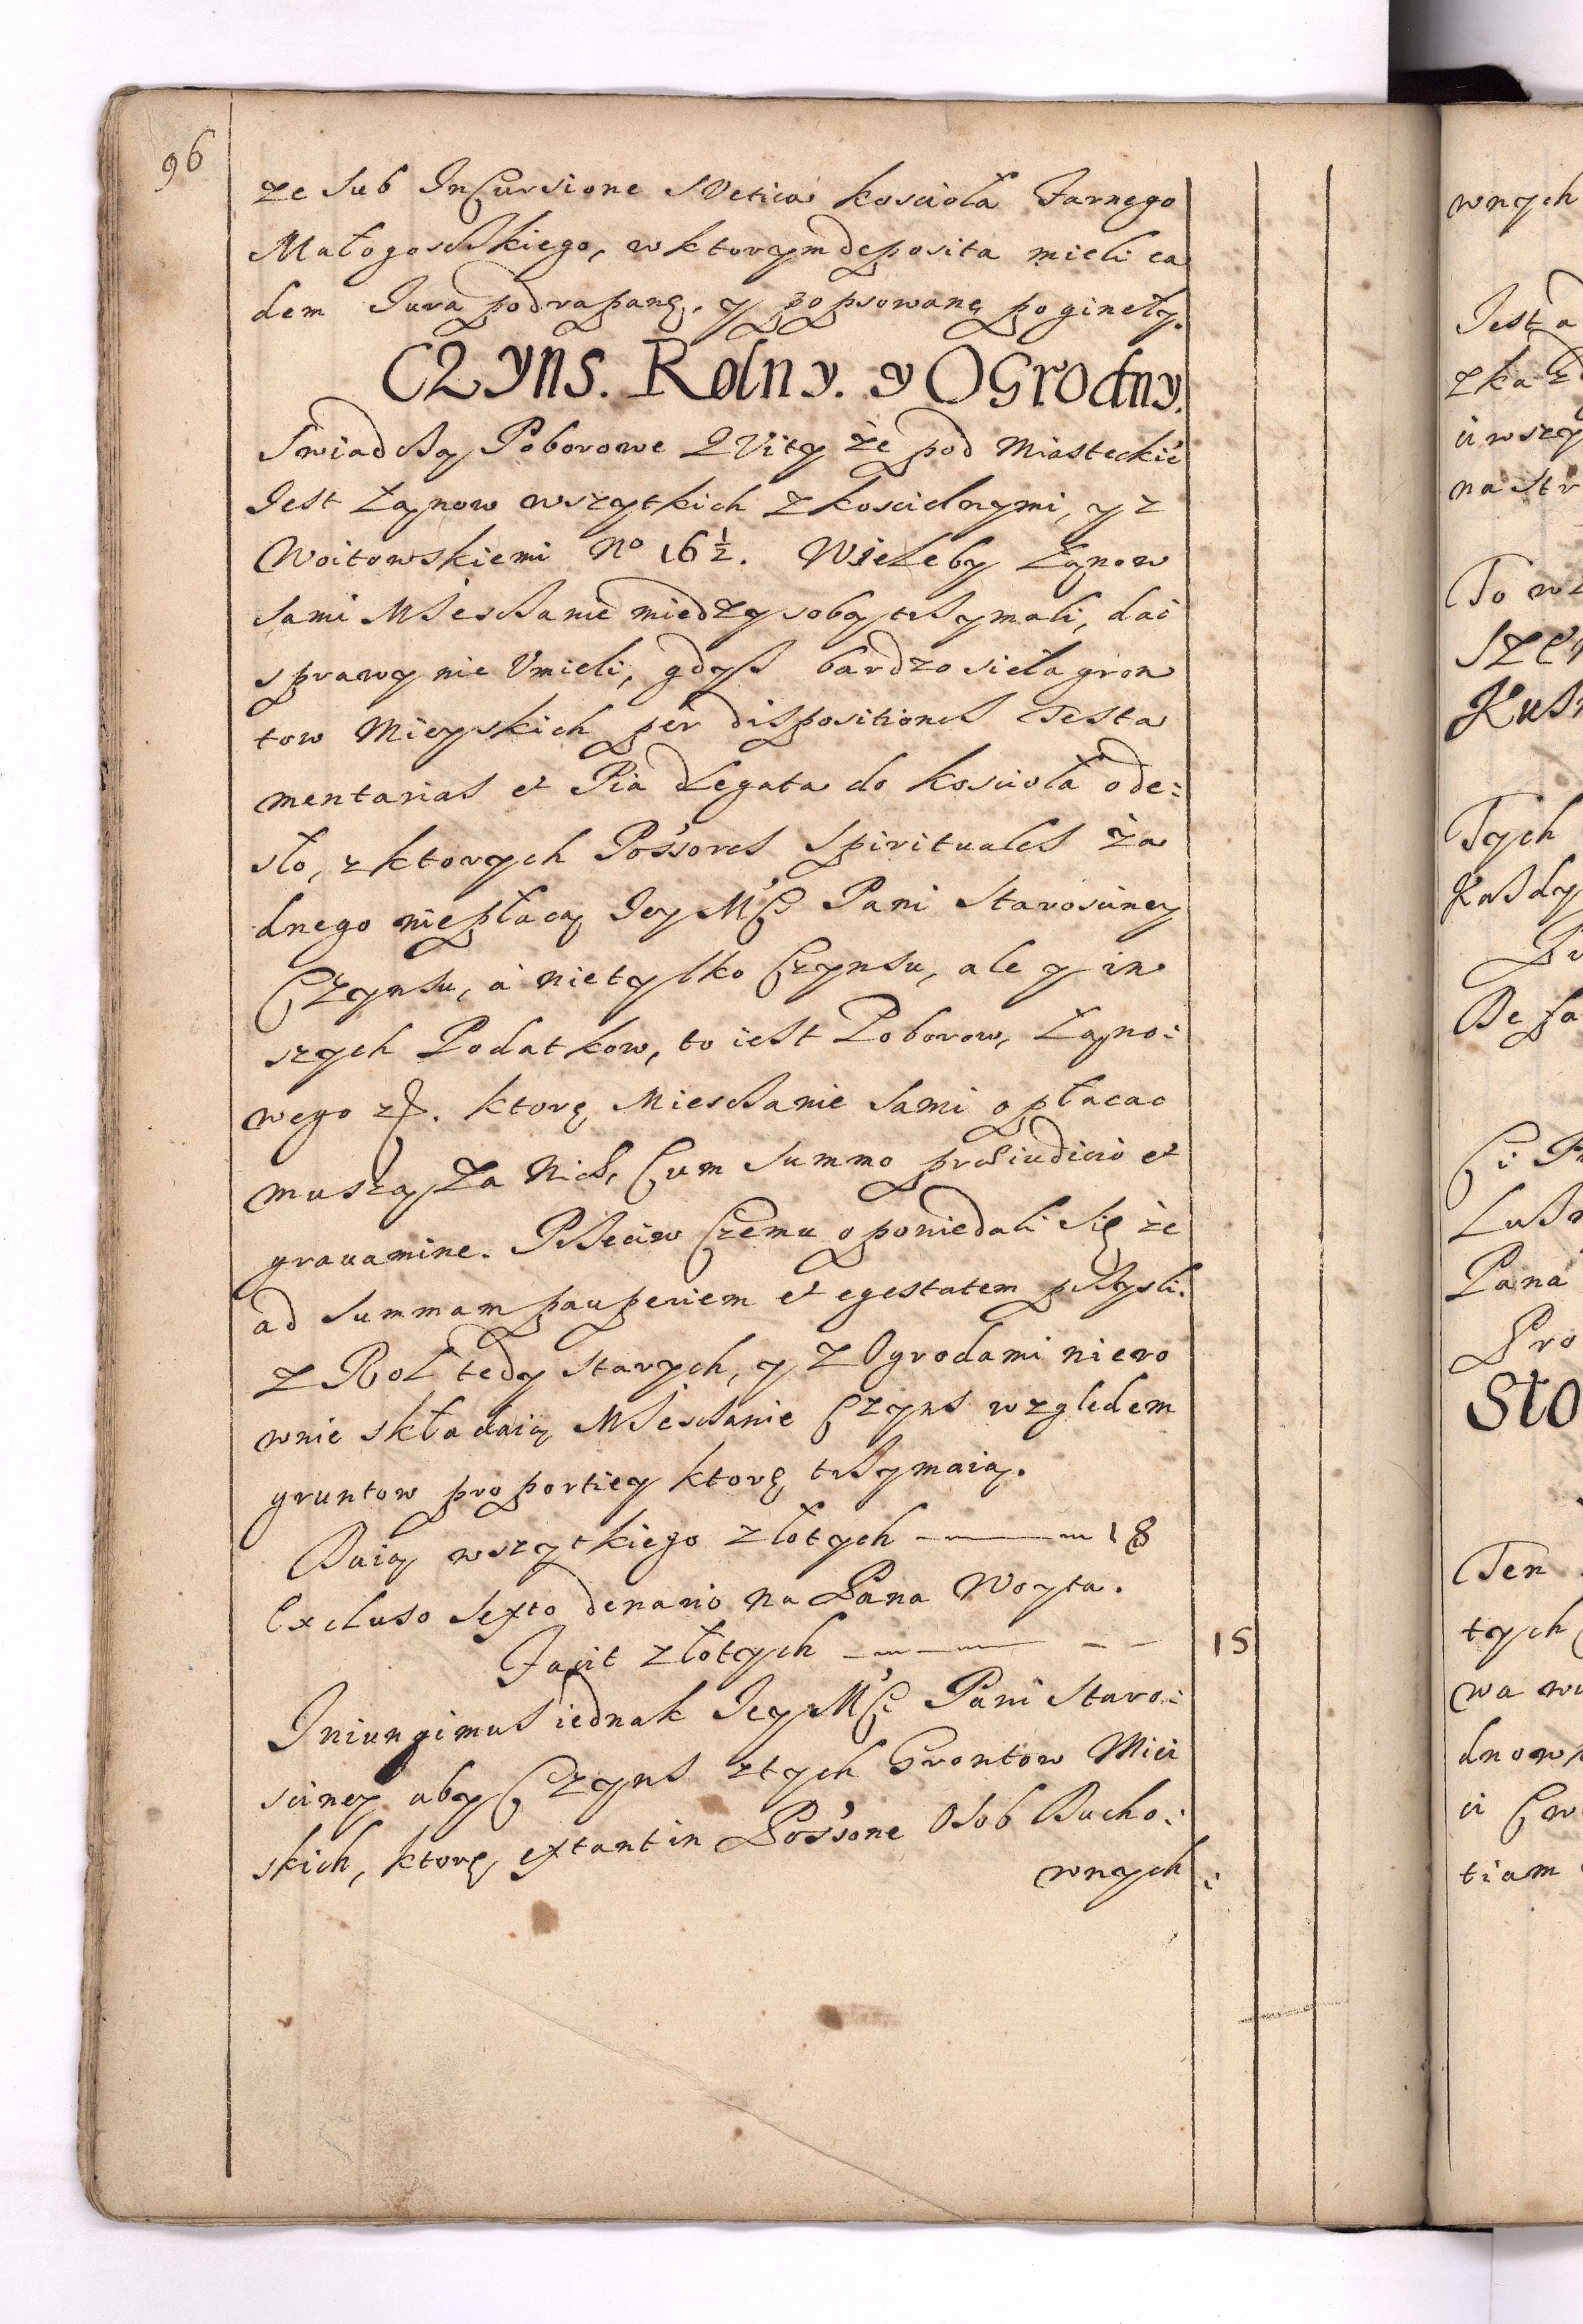 96
ze sub Incursione SVetica koscioła Farnego
Małogosskiego, w ktorym deposita mieli ea
dem Iura podrapanę, y popsowanę poginęły.
CZYNS. Rolny. y OGrodny.
Swiadszą Poborowe QVity że pod Miasteckiē
Iest Łanow wszytkich z koscielnymi, y z
Woitowskiemi No 16 1/2. Wieleby Łanow
sami Miesszanie między sobą trzymali, dać
sprawy nie Vmieli, gdysz bardzo sieła gron
tow Mieyskich per dispositiones Testa
mentarias et Pia Legata do kosciola ode:
sło, z ktorych Possores Spirituales ża
dnego niepłacą Iey Mści Pani Starosciney
Czynsu, a nietylko Czynsu, ale y in
szych Podatkow, to iest Poborow, Łano:
wego etc. ktorę Miesszanie sami opłacac
muszą Za Nich, Cum summo preiudicio et
grauamine. Przeciw Czemu opowiedali się że
ad summam pauperiem et egestatem przysli.
Z Rol tedy starych, y z Ogrodami niero
wnie składaią Miesszanie Czyns względem
gruntow proportiey ktorę trzymaią.
Daią wszytkiego złotych 18
Excluso sexto denario na Pana Woyta.
Facit złotych 15
Iniungimus iednak Iey Mści Pani Staro:
sciney aby Czyns z tych Grontow Miei
skich, ktorę extant in Possone Osob Ducho:
wnych:
wnych
Iest a
To w
Tych
Każdy
Pana
Pro
Sto
Ten
tych
tiam